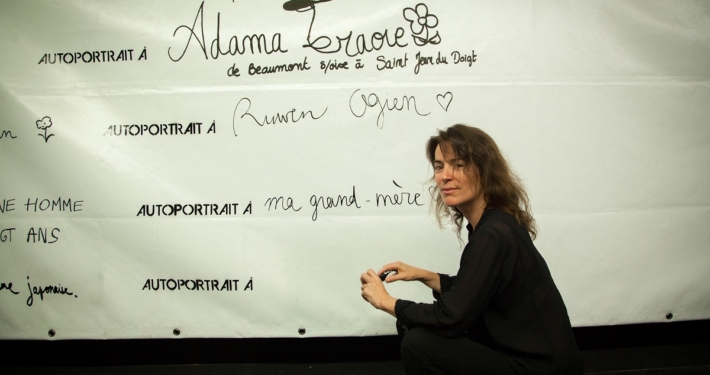 AUTOPORTRAIT À Adama Traore
de Beaumont s/oise à Saint Jean du Doigt
AUTOPORTRAIT À Ruwen Ogien ♡
AUTOPORTRAIT À ma grand-mère
HOMME
ANS
AUTOPORTRAIT À
japonaise.